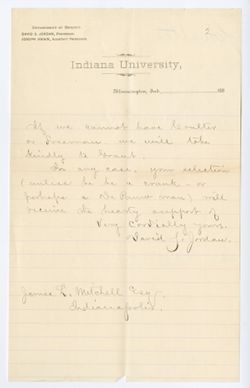 Department of Biology.
DAVID S. JORDAN, Professor.
JOSEPH SWAIN, Assistant Professor.
2
Indiana University,
Bloomington, Ind. 188
If we cannot have Coulter
or Inerman we will take
kindly to Grant.
For any case, your selection
(unless he be a crank – or
perhaps a DePauw man) will
receive the hearty support of
Very Cordially yours,
David S. Jordan.
James L. Mitchell Esq.
Indianapolis.